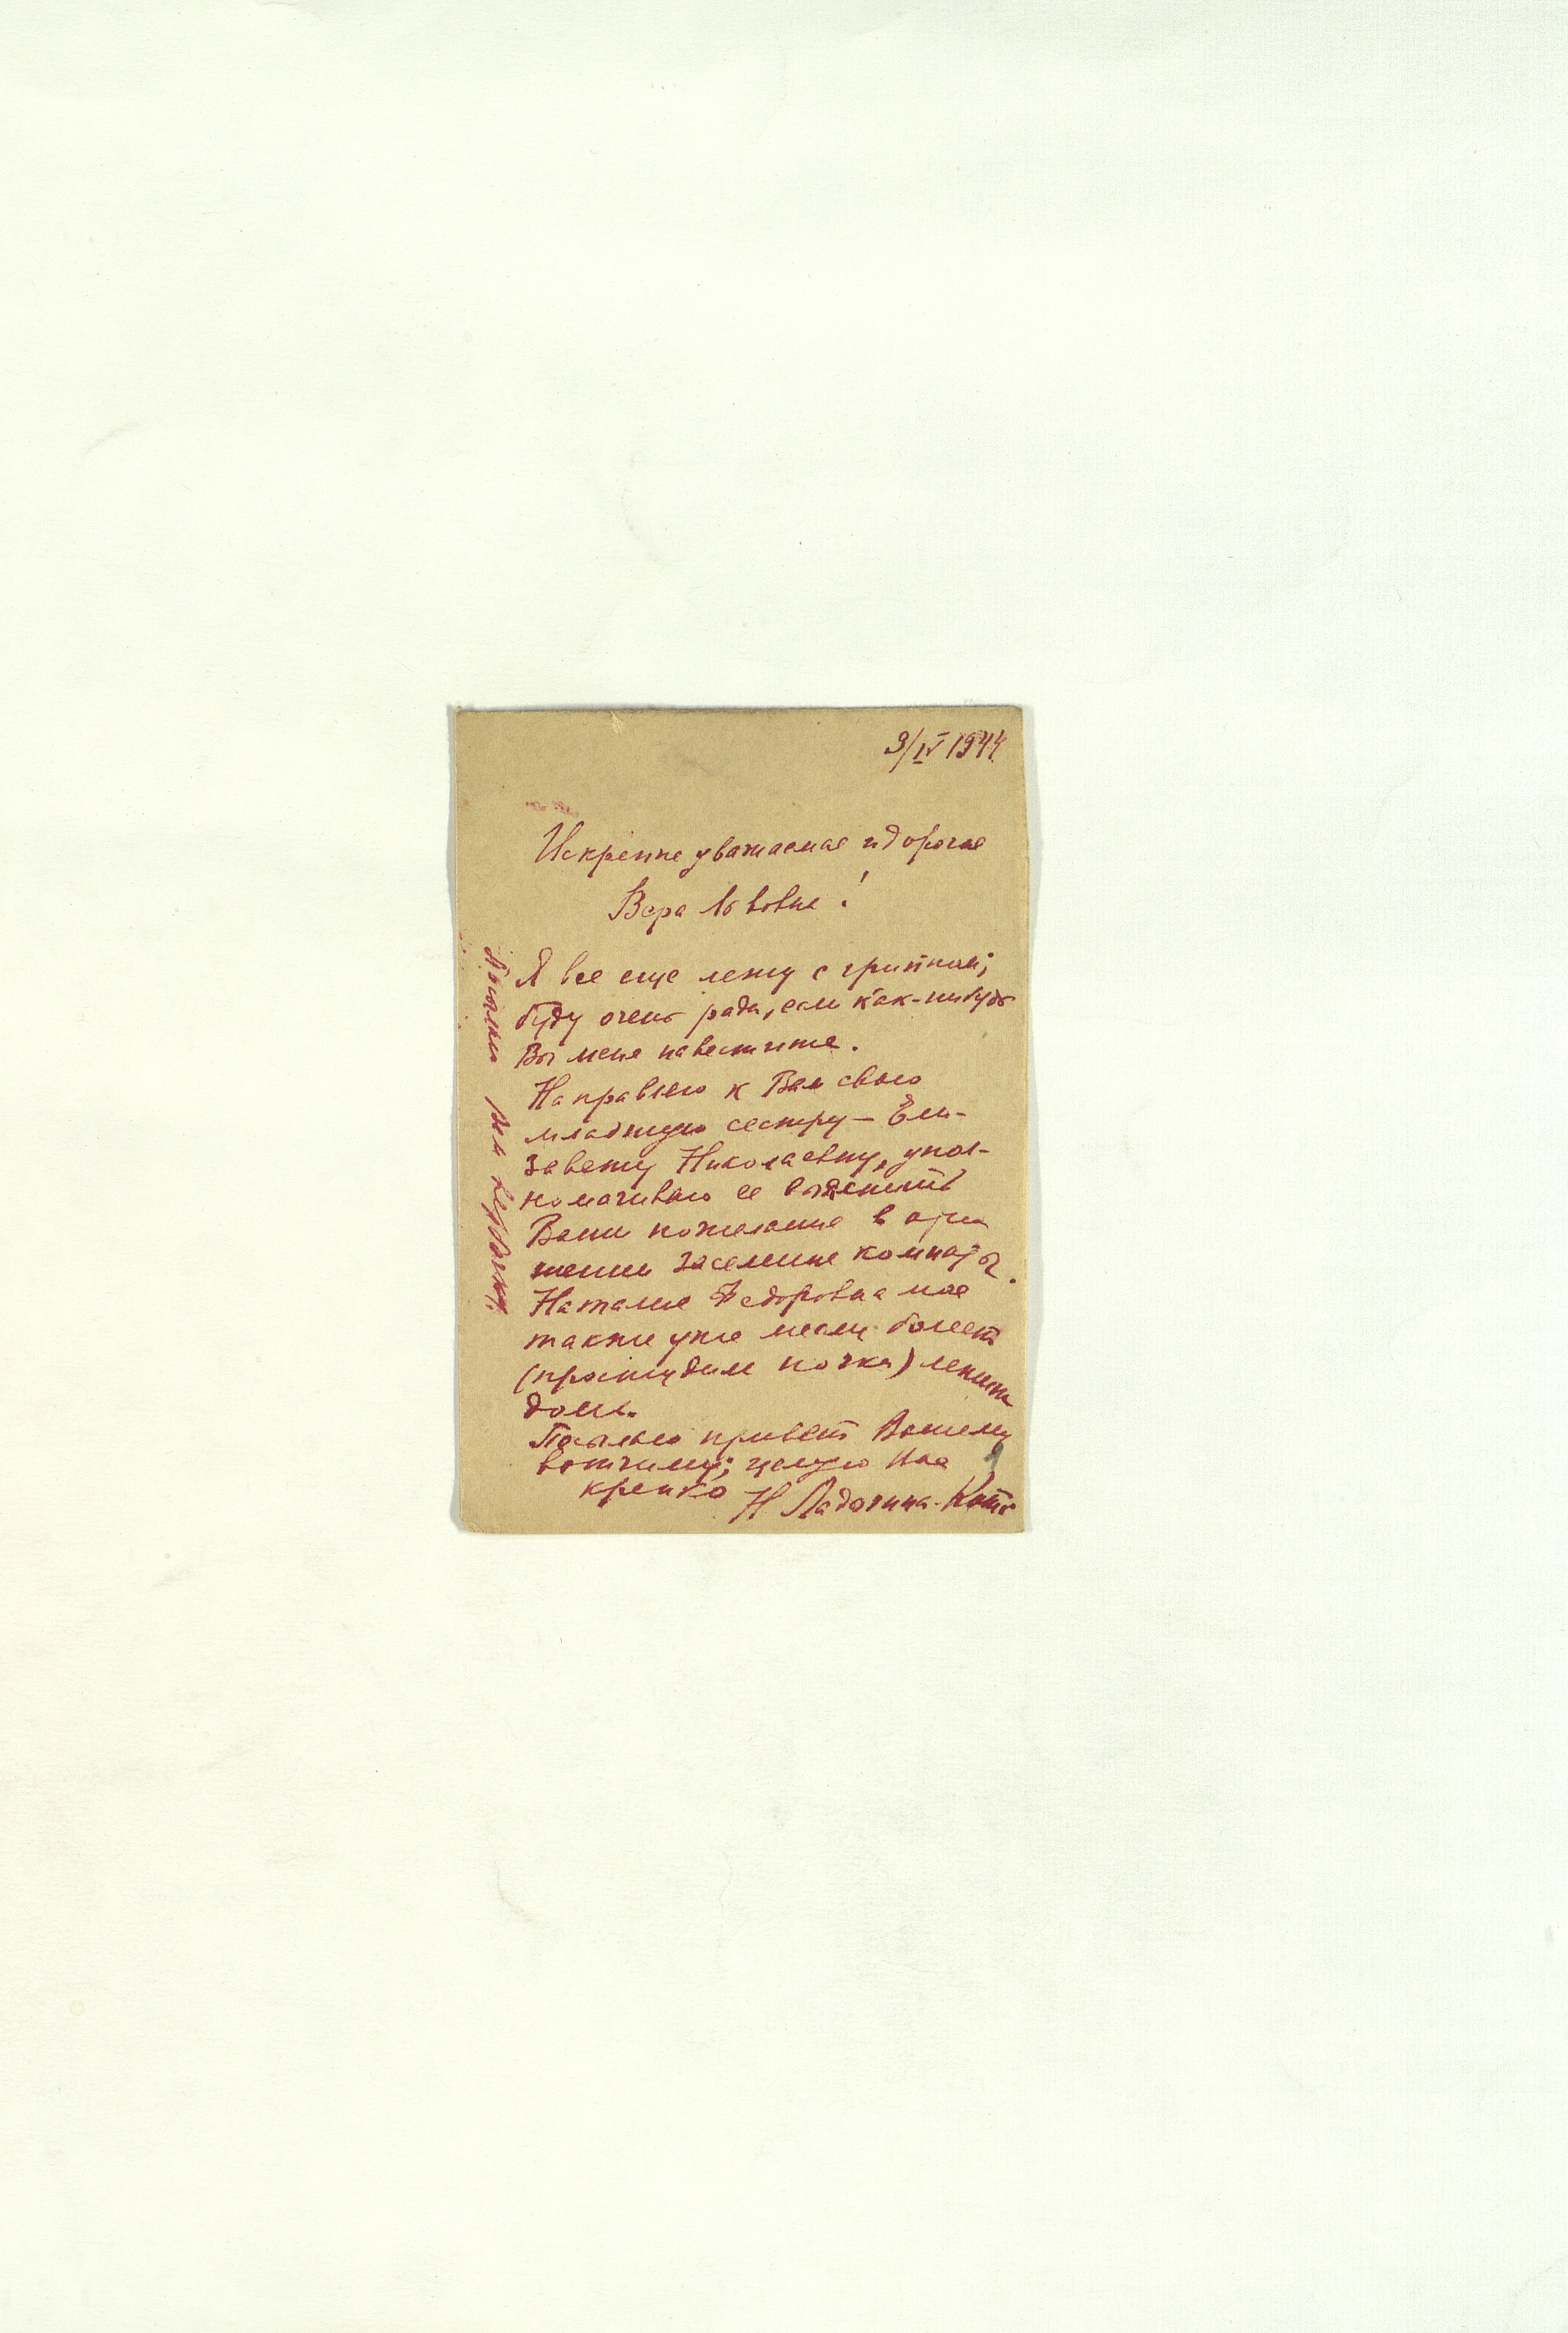 9/IV 1944.
Искренне уважаемая и дорогая
Вера Львовна!
Я все еще лежу с гриппом;
буду очень рада, если как-нибудь
Вы меня навестите.
Направляю к Вам свою
младшую сестру — Ели-
завету Николаевну, упол-
номачиваю ее выяснить
Ваши пожелания в отно
шении заселения комнаты.
Наталия Федоровна моя
также уже месяц болеет
(простудила почки) лежит
дома.
Посылаю привет Вашему
вотчиму; целую Вас
крепко Н Ладогина-Котс
Посылаю Вам